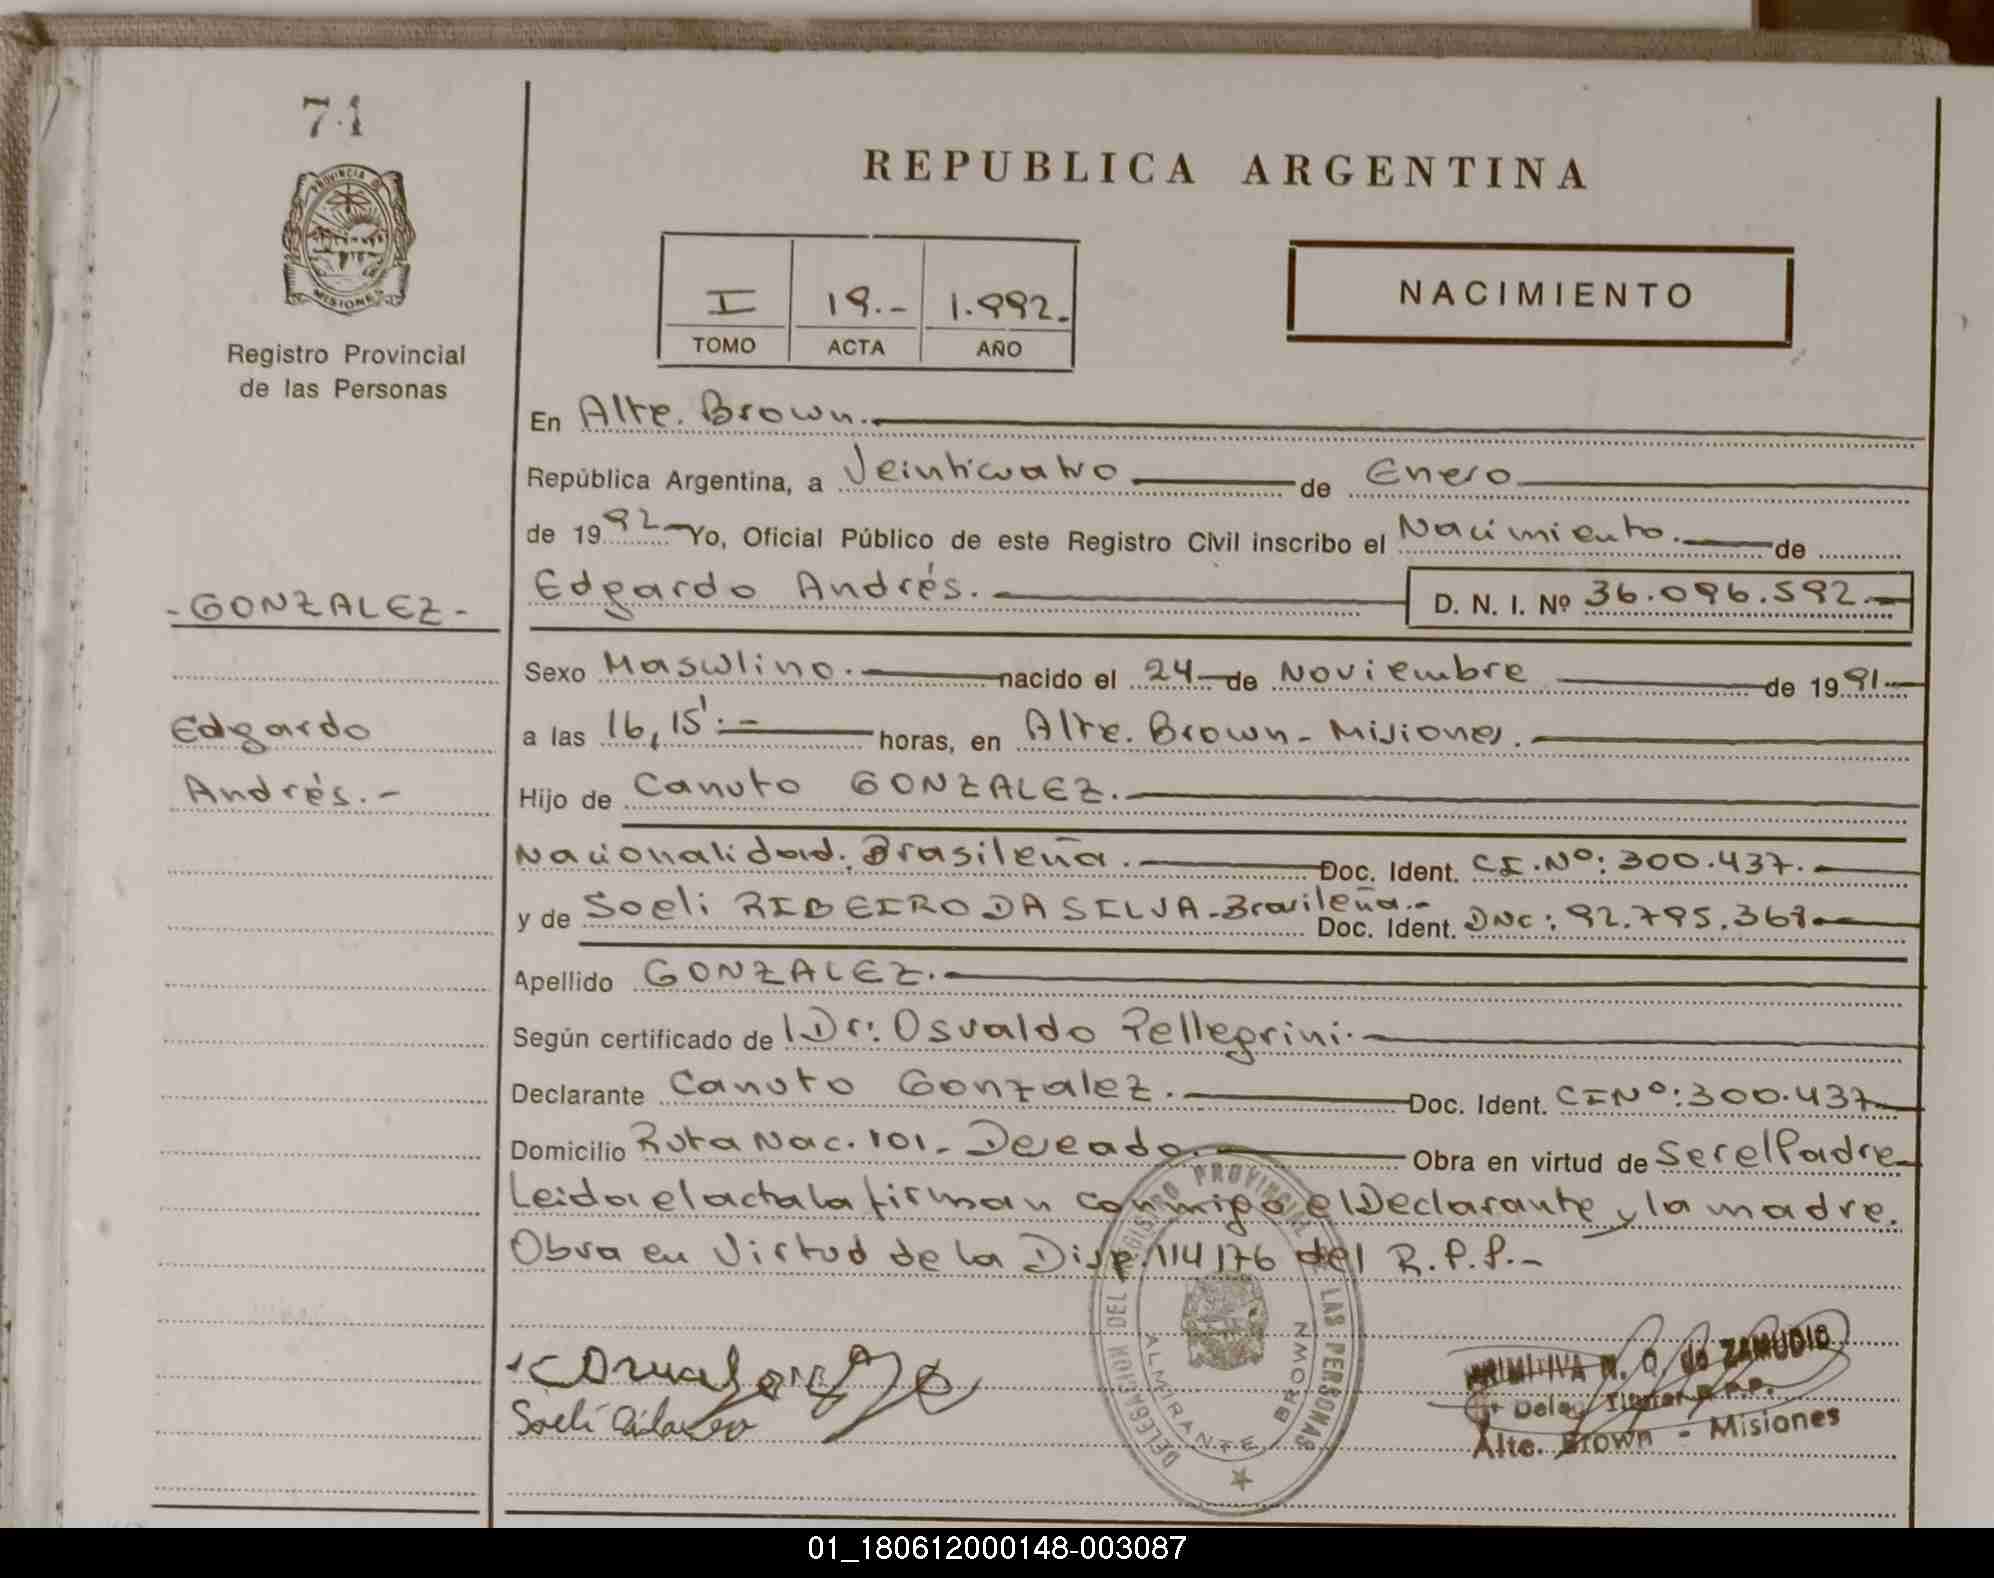 74
REPUBLICA ARGENTINA
PROVINCIA DE
MISIONES
Registro Provincial
de las Personas
I 19.- 1.992.-
TOMO ACTA AÑO
NACIMIENTO
En Alte. Brown.
República Argentina, a Veinticuatro de Enero
de 1992 Yo, Oficial Público de este Registro Civil inscribo el Nacimiento. de
-GONZALEZ-
Edgardo Andrés. D. N. I. Nº 36.096.592.-
Sexo Masculino. nacido el 24 de Noviembre de 1991
Edgardo
a las 16,15'.- horas, en Alte. Brown - Misiones.
Andrés.-
Hijo de Canuto GONZALEZ.
Nacionalidad. Brasileña. Doc. Ident. CI.Nº: 300.437.
y de Soeli RIBEIRO DA SILVA-Brasileña.- Doc. Ident. DNC: 92.795.368
Apellido GONZALEZ.
Según certificado de Dr: Osvaldo Pellegrini.
Declarante Canuto Gonzalez. Doc. Ident. CINº:300.437
Domicilio Ruta Nac. 101 - Deseado. Obra en virtud de Ser el Padre
Leida el acta la firman conmigo el Declarante y la madre.
Obra en Virtud de la Disp. 114/76 del R.P.P.-
DELEGACION DEL REGISTRO PROVINCIAL DE LAS PERSONAS
ALMIRANTE BROWN
Soeli
PRIMITIVA N. O. de ZAMUDIO
Alte. Brown - Misiones
01_180612000148-003087